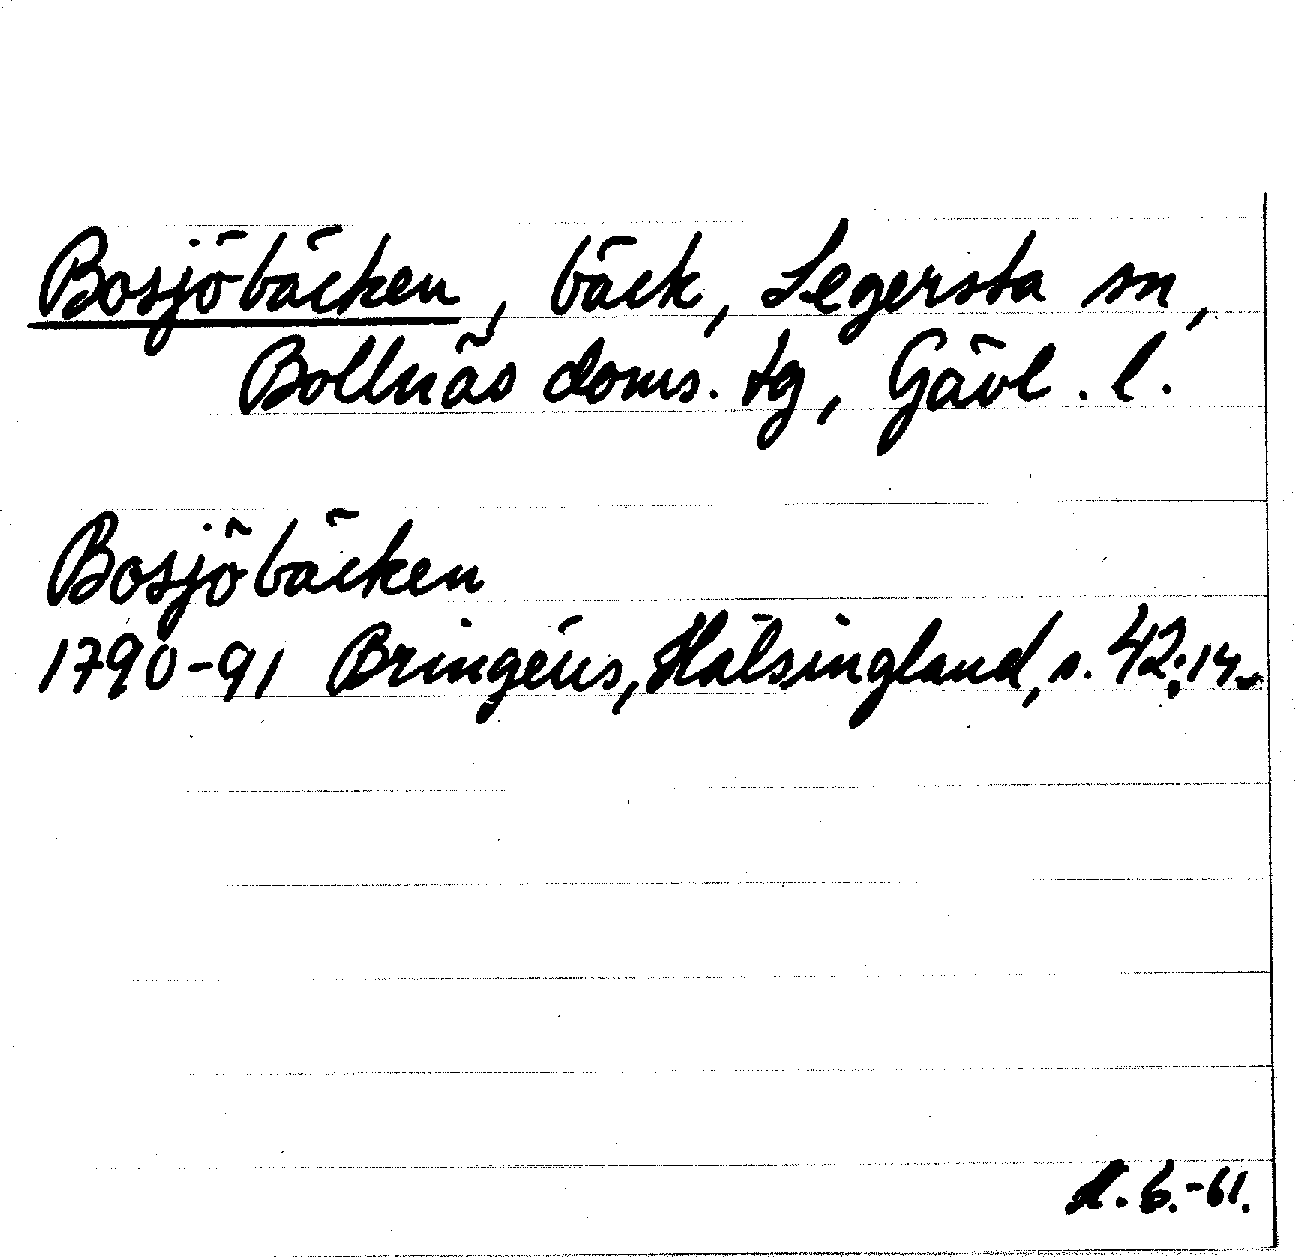 Bosjöbäcken, bäck, Segersta sn,
Bollnäs doms. tg, Gävl. l.
Bosjöbäcken
1790-91 Bringéus, Hälsingland, s. 42;14
6.-61.